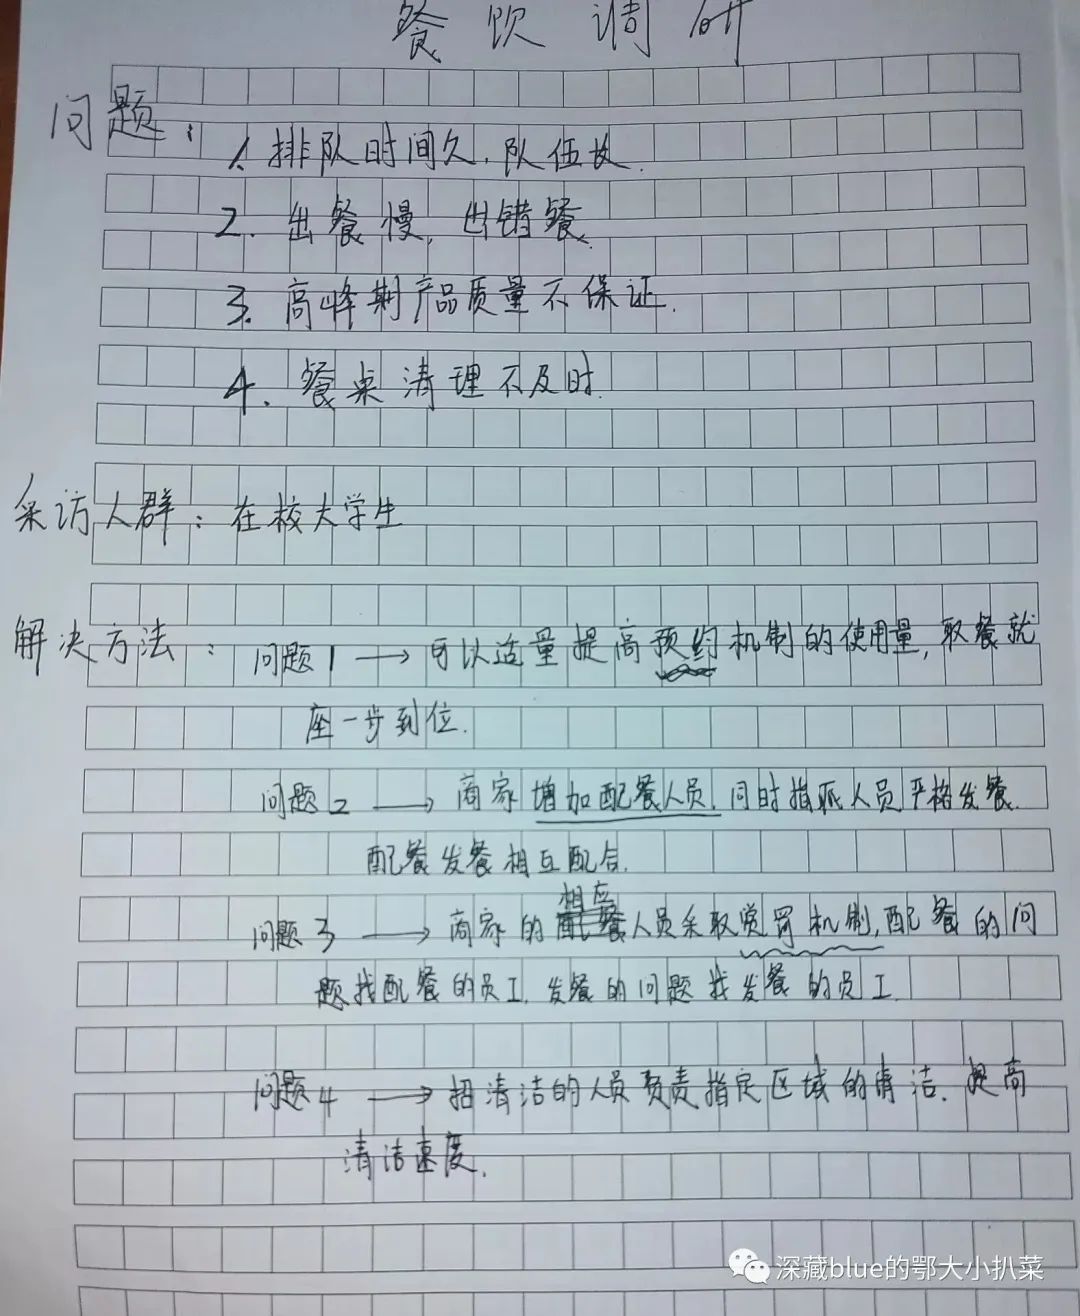 餐饮调研
问题：
1. 排队时间久，队伍长.
2. 出餐慢，出错餐.
3. 高峰期产品质量不保证.
4. 餐桌清理不及时.
采访人群：在校大学生
解决方法：问题1 → 可以适量提高预约机制的使用量，取餐就
座一步到位.
问题2 → 商家增加配餐人员，同时指派人员严格发餐.
配餐发餐相互配合.
相应
问题3 → 商家的配餐人员采取赏罚机制，配餐的问
题找配餐的员工，发餐的问题找发餐的员工.
问题4 → 招清洁的人员负责指定区域的清洁，提高
清洁速度.
深藏blue的鄂大小扒菜